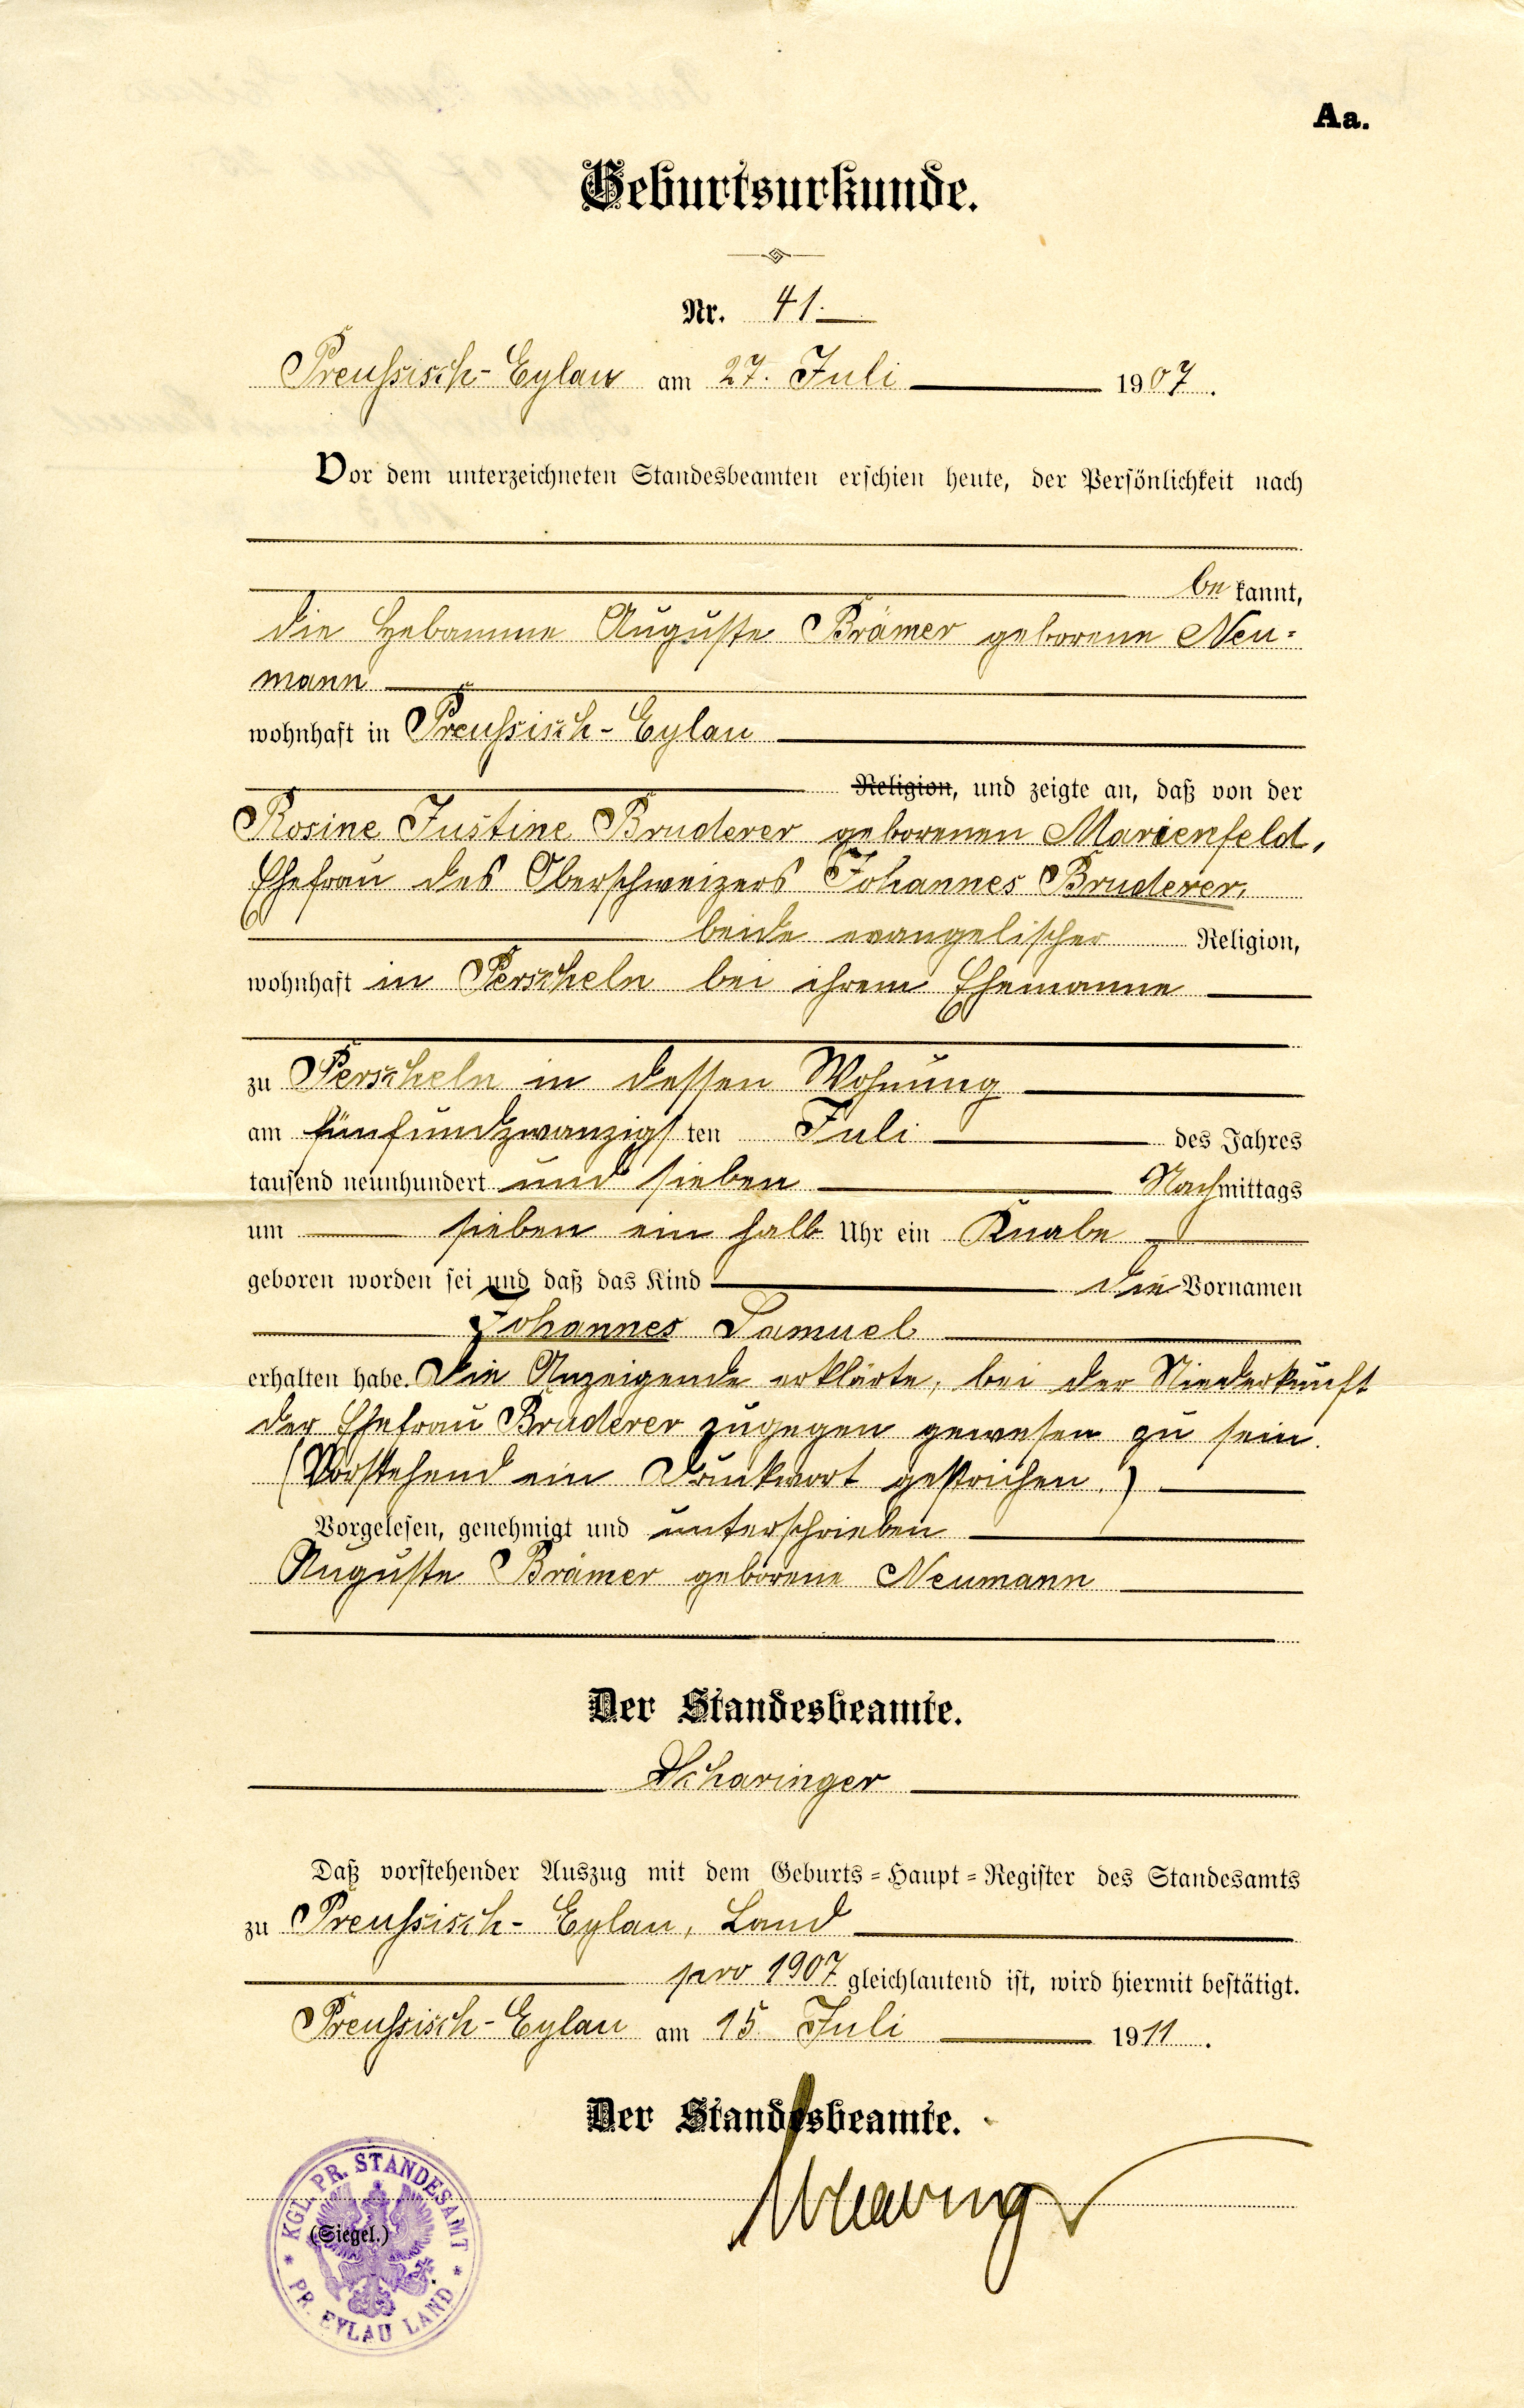 Aa.
Geburtsurkunde.
Nr. 41.
Preussisch-Eylau am 27. Juli 1907.
Vor dem unterzeichneten Standesbeamten erschien heute, der Persönlichkeit nach
bekannt,
die Hebamme Auguste Brämer geborene Neu=
mann
wohnhaft in Preussisch-Eylau
Religion, und zeigte an, daß von der
Rosine Justine Bruderer geborenen Marienfeld,
Ehefrau des Oberschweizers Johannes Bruderer,
beide evangelischer Religion,
wohnhaft in Perscheln bei ihrem Ehemanne
zu Perscheln in dessen Wohnung
am fünfundzwanzigsten Juli des Jahres
tausend neunhundert und sieben Nachmittags
um sieben ein halb Uhr ein Knabe
geboren worden sei und daß das Kind die Vornamen
Johannes Samuel
erhalten habe. Die Anzeigende erklärte, bei der Niederkunft
der Ehefrau Bruderer zugegen gewesen zu sein.
(Vorstehend ein Druckwort gestrichen.)
Vorgelesen, genehmigt und unterschrieben
Auguste Brämer geborene Neumann
Der Standesbeamte.
Scharinger
Daß vorstehender Auszug mit dem Geburts=Haupt=Register des Standesamts
zu Preussisch-Eylau, Land
pro 1907 gleichlautend ist, wird hiermit bestätigt.
Preussisch-Eylau am 15. Juli 1911.
Der Standesbeamte.
Scharinger
KGL. PR. STANDESAMT
(Siegel.)
* PR. EYLAU LAND *